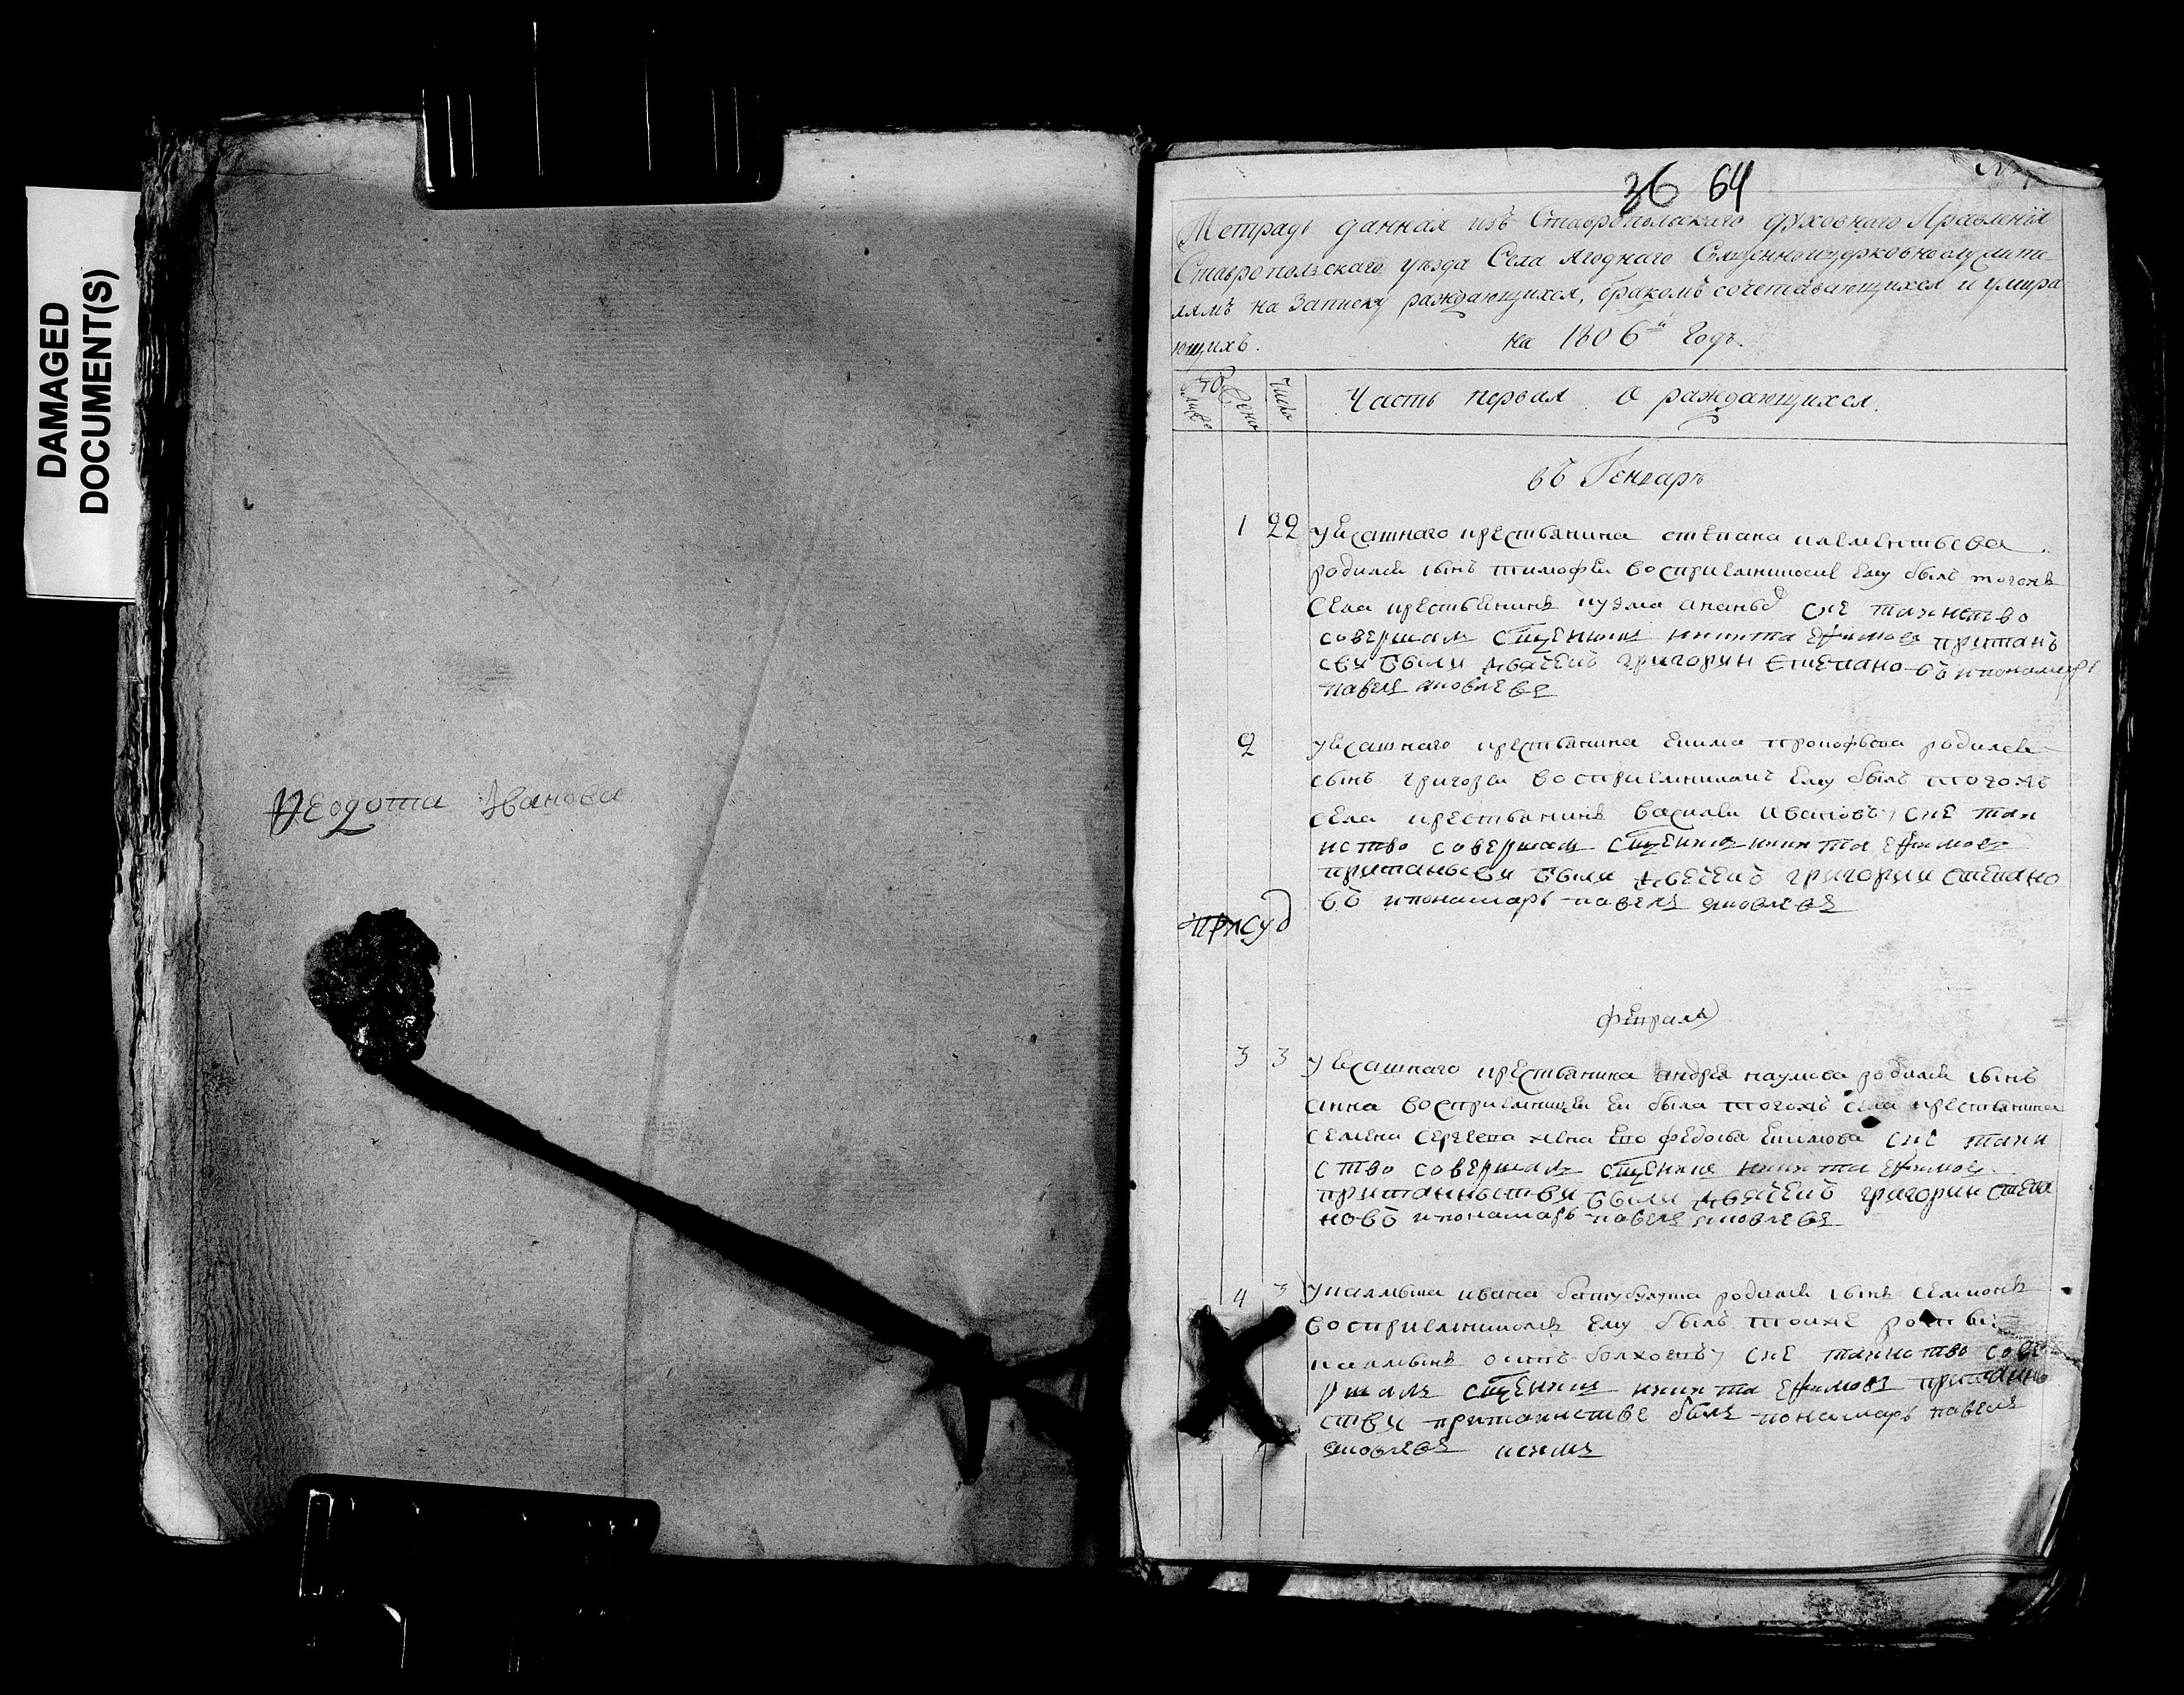 DAMAGED
DOCUMENT(S)
Ѳеодота Иванова
36 64
Тетрадь данная изъ Ставропольскаго духовнаго Правленія
Ставропольскаго уезда Села Ягоднаго Священноцерковнослужите
лямъ на Записку раждающихся, бракомъ сочетавающихся и умира
ющихъ. на 1806й годъ.
Числа
Часть первая О раждающихся.
въ Генваре
1 22 у ясашнаго крестьянина степана клементьева
родился сынъ тимофей восприемникомъ ему былъ тогожъ
села крестьянинъ кузма ананьѣ сие таинство
совершалъ сщенникъ никита ефимовъ притаинъ
сви были дьячекъ григории степано въ и пономарь
павелъ яковлевъ
2 у ясашнаго крестьянина екима прокофьева родился
сынъ григореи восприемникомъ ему былъ тогожъ
села крестьянинъ василеи ивановъ сие таи
нство совершалъ сщенникъ никита ефимовъ
пританьсви были дьячекъ григории степано
въ и понамарь павелъ яковлевъ
февраля
3 3 у ясашнаго крестьянина андрея наумова родился сынъ
анна восприемницеи еи была тогожъ села крестьянина
семена сергеева жена ево федосья екимова сие таин
ство совершалъ сщенникъ никита ефимовъ
притаиньстви были дьячекъ григории степа
новъ и понамарь павелъ яковлевъ
4 3 у калмыка ивана родился сынъ
восприемникомъ ему былъ
калмыкъ осипъ сие таинство сове
ршалъ сщенникъ никита ефимовъ притаинь
стви притаинстве былъ понамарь павелъ
яковлевъ